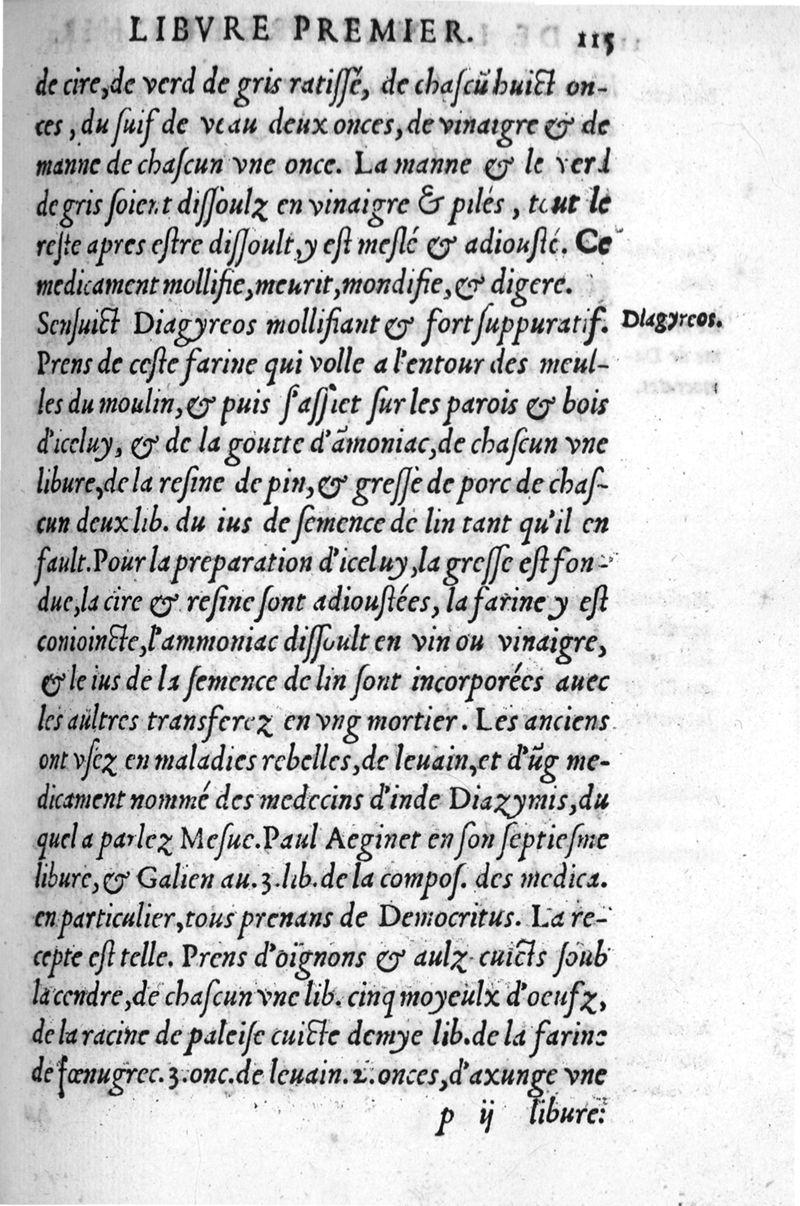 LIBVRE PREMIER. 115
de cire, de verd de gris ratiſſé, de chaſcũ huict on-
ces, du ſuif de veau deux onces, de vinaigre & de
manne de chaſcun vne once. La manne & le verd
de gris ſoient diſſoulz en vinaigre & pilés, tout le
reſte apres eſtre diſſoult, y eſt meſlé & adiouſté. Ce
medicament mollifie, meurit, mondifie, & digere.
Senſuict Diagyreos mollifiant & fort ſuppuratif. Diagyreos.
Prens de ceſte farine qui volle a l'entour des meul-
les du moulin, & puis ſ'aſſiet ſur les parois & bois
d'iceluy, & de la goutte d'ãmoniac, de chaſcun vne
libure, de la reſine de pin, & greſſe de porc de chaſ-
cun deux lib. du ius de ſemence de lin tant qu'il en
fault. Pour la preparation d'iceluy, la greſſe eſt fon-
due, la cire & reſine ſont adiouſtées, la farine y eſt
conioincte, l'ammoniac diſſoult en vin ou vinaigre,
& le ius de la ſemence de lin ſont incorporées auec
les aultres transferez en vng mortier. Les anciens
ont vſez en maladies rebelles, de leuain, et d'ũg me-
dicament nommé des medecins d'inde Diazymis, du
quel a parlez Meſue. Paul Aeginet en ſon ſeptieſme
libure, & Galien au. 3. lib. de la compoſ. des medica.
en particulier, tous prenans de Democritus. La re-
cepte eſt telle. Prens d'oignons & aulz cuicts ſoub
la cendre, de chaſcun vne lib. cinq moyeulx d'oeufz,
de la racine de paleiſe cuicte demye lib. de la farine
de fœnugrec. 3. onc. de leuain. 2. onces, d'axunge vne
p ij libure: